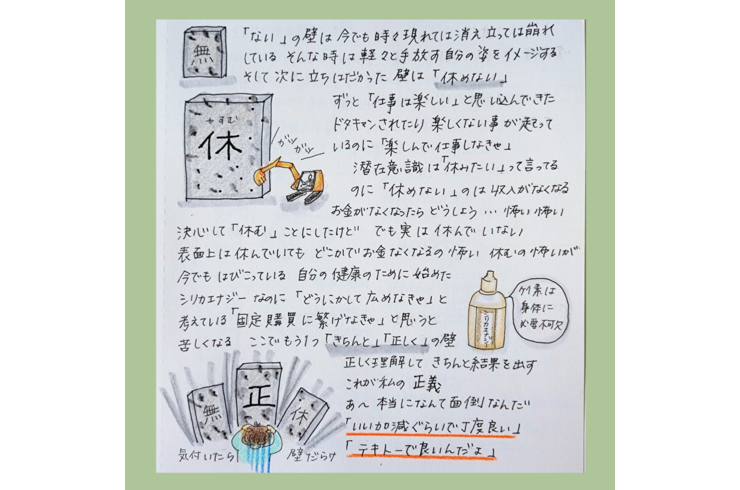 無
「ない」の壁は今でも時々現れては消え立っては崩れ
している そんな時は軽々と手放す自分の姿をイメージする
そして次に立ちはだかった壁は「休めない」
やすむ
休
ガッ
ガッ
ずっと「仕事は楽しい」と思い込んできた
ドタキャンされたり楽しくない事が起って
いるのに「楽しんで仕事しなきゃ」
潜在意識は「休みたい」って言ってる
のに「休めない」のは収入がなくなる
お金がなくなったらどうしよう…怖い怖い
決心して「休む」ことにしたけど でも実は休んでいない
表面上は休んでいても どこかでお金なくなるの怖い 休むの怖いが
今でもはびこっている 自分の健康のために始めた
シリカエナジー なのに「どうにかして広めなきゃ」と
考えている「固定購買に繋げなきゃ」と思うと
苦しくなる ここでもう1つ「きちんと」「正しく」の壁
シリカエナジー
ケイ素は
身体に
必要不可欠
正しく理解して きちんと結果を出す
これが私の 正義
あ〜 本当になんて面倒なんだ
「いい加減ぐらいで丁度良い」
「テキトーで良いんだよ」
無
正
休
気付いたら 壁だらけ